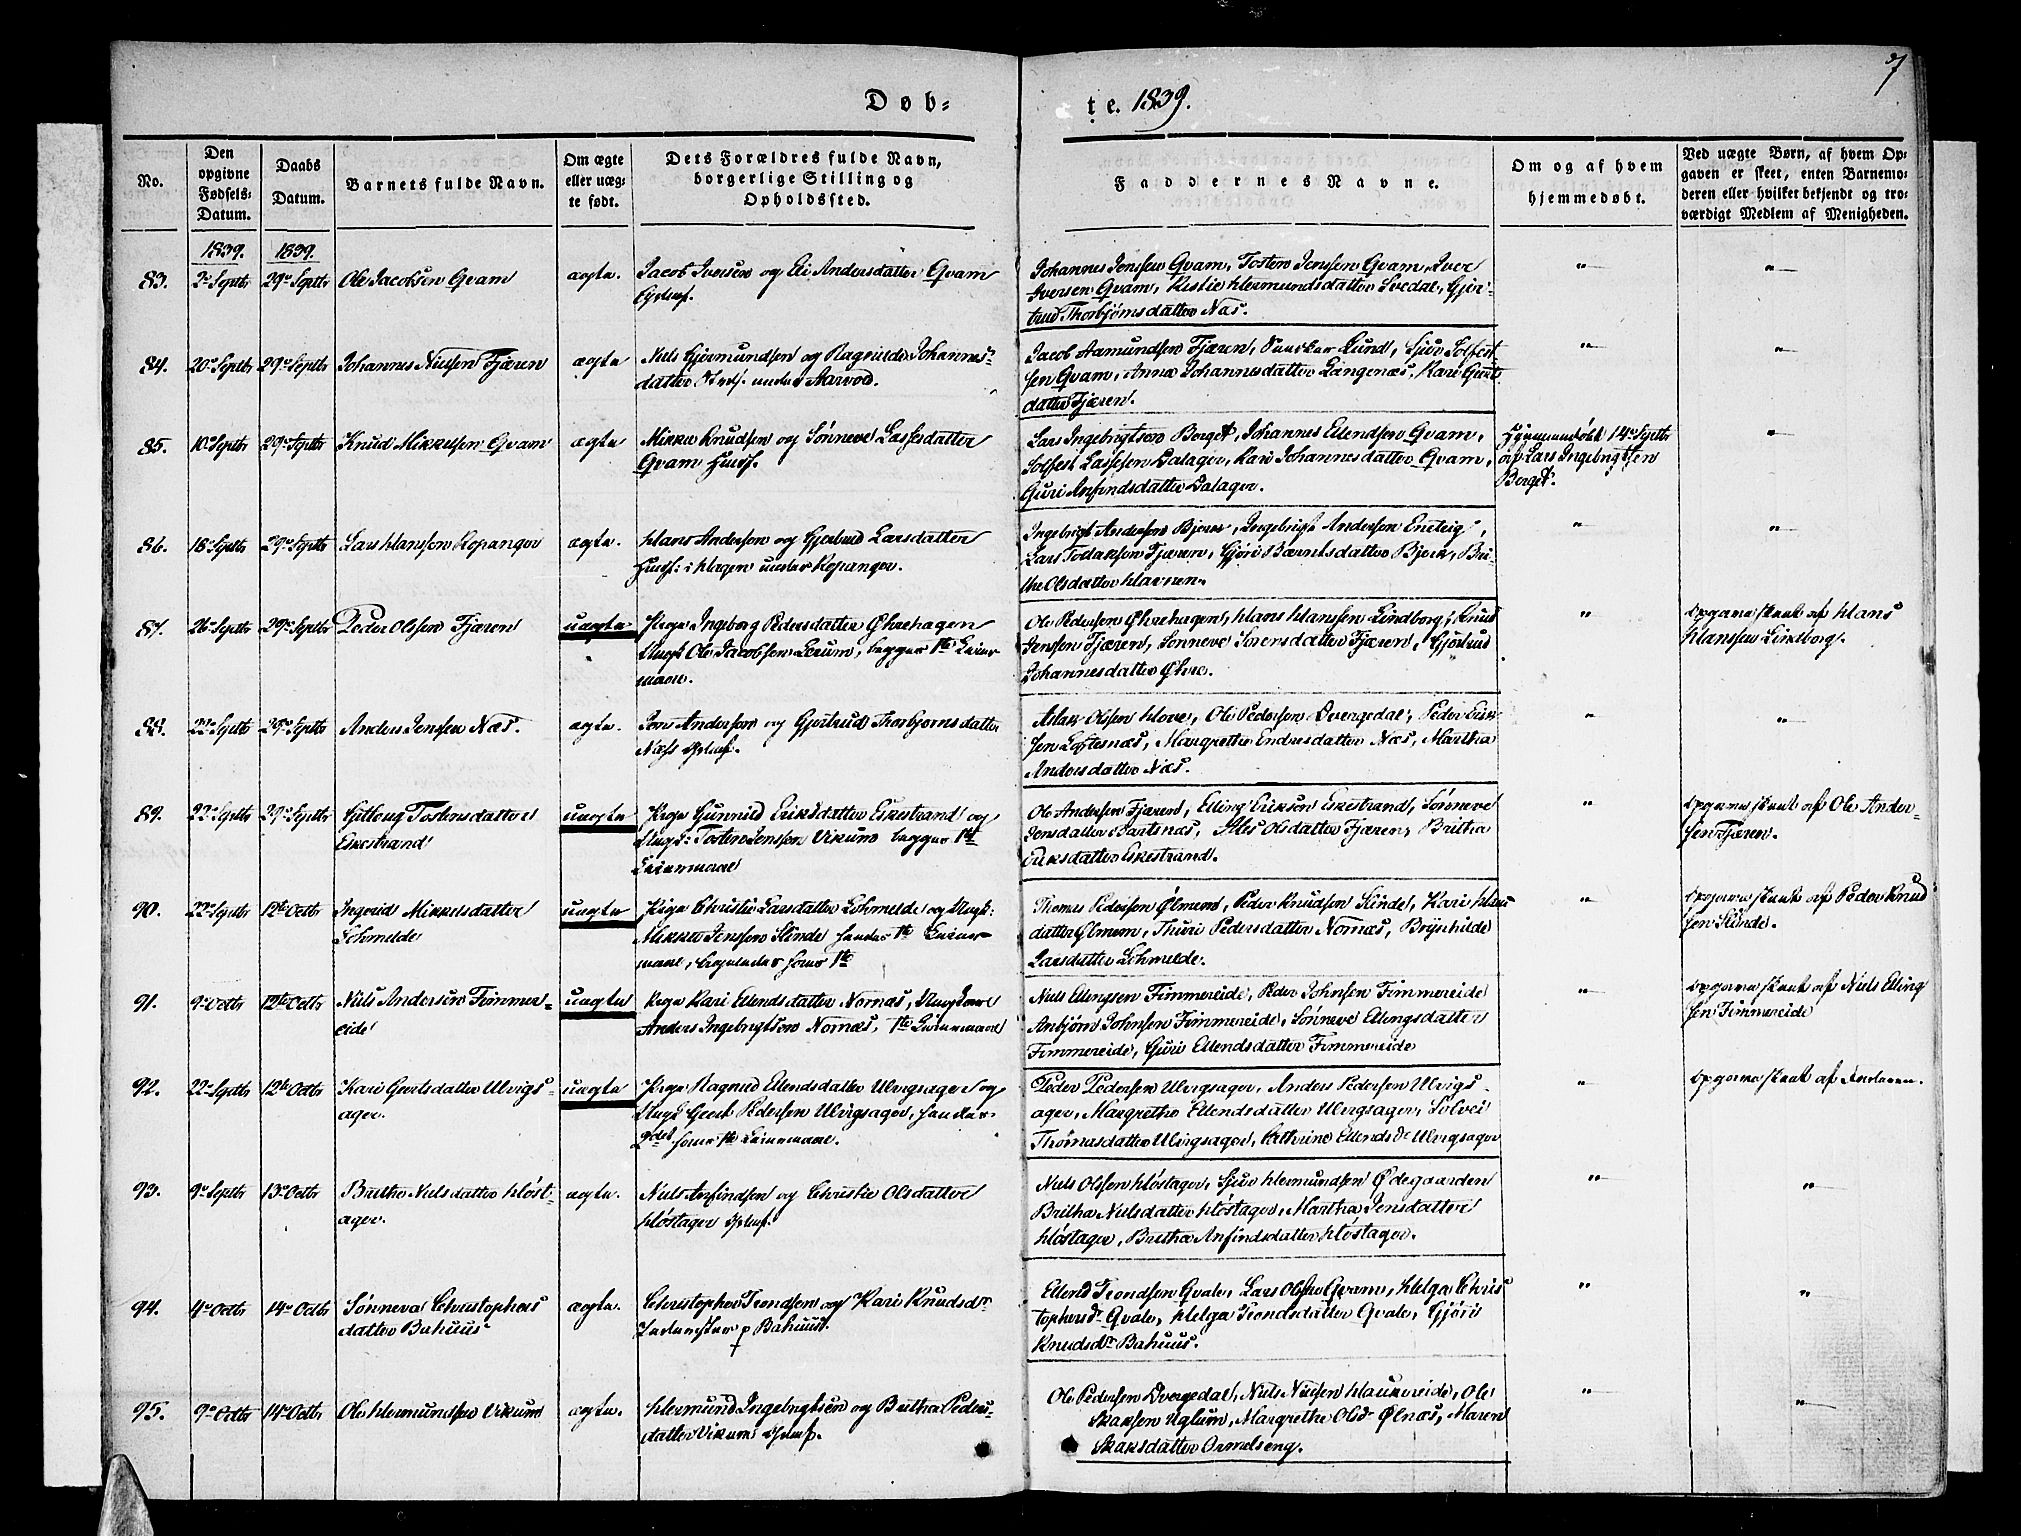 7
Døb-
te. 1839.
No.
Den opgivne Fødsels-Datum.
Daabs Datum.
Barnets fulde Navn.
Om ægte eller uægte født.
Dets Forældres fulde Navn, borgerlige Stilling og Opholdssted.
Faddernes Navne.
Om og af hvem hjemmedøbt.
Ved uægte Børn, af hvem Opgaven er skeet, enten Barnemoderen eller hvilket bekjendt og troværdigt Medlem af Menigheden.
1839. 1839.
83. 29de Septbr Ole Jacobsen Qvam ægte. Jacob Iversen og Eli Andersdatter Qvam
Johannes Jenssen Qvam, Tosten Jenssen Qvam, Iver
Iversen Qvam, Hermundsdatter Svedal, Gjer-
trud Thorbjørnsdatter Næs.
84. 20de Septbr 29de Septbr Johannes Nielsen Fjæren ægte Niels Gjermundsen og Ragnilde Johannes-
datter Inds. under Aarvold.
Jacob Aamundsen Fjæren, Lund, Sjur Solfest-
sen Qvam, Anna Johannesdatter Langenæs, Kari Guri-
datter Fjæren.
85. 10de Septbr 29de Septbr Knud Mikkelsen Qvam ægte Mikkel Knudsen og Sønneve Lassesdatter
Qvam Huusf.
Lars Ingebrigtsen Berget, Johannes Ellendsen Qvam,
Solfest Lassesen Dalager, Kari Johannesdatter Qvam,
Guri Anfindsdatter Dalager.
Hjemmedøbt 14de Septbr
af Lars Ingebrigtsen
Berget.
86. 18de Septbr 29de Septbr Lars Hanssen Kopanger ægte. Hans Andersen og Gjertrud Larsdatter
Huusf. i Hagen under Kopanger.
Ingebrigt Andersen Bjork, Ingebrigt Andersen Eneteig,
Lars Fjæren, Gjøri Bærntsdatter Bjerk, Bri-
the Olsdatter Havnen.
87. 26de Septbr 29de Septbr Peder Olsen Fjæren uægte Pige Ingeborg Pedersdatter Øhrehagen
Ungk Ole Jacobsen Leerum, begges 1ste Leier-
maal.
Ole Pedersen Øhrehagen, Hans Hanssen Lindborg, Knud
Jenssen Fjæren, Sønneve Sørensdatter Fjæren, Gjertrud
Johannesdatter Øhre.
Opgaven skeet af Hans
Hanssen Lindborg.
88. 22de Septbr 29de Septbr Anders Jenssen Næs. ægte. Jens Andersen og Gjertrud Thorbjornsdatter
Næss
Aslak Olssen Hove, Ole Pedersen Dvergedal, Peder Erik-
sen Loftesnæs, Margrethe Endresdatter Næs, Martha
Andersdatter Næs.
89. 22de Septbr 29de Septbr Gitlaug Tostensdatter
Eskestrand uægte Pige Gunnild Eriksdatter Eskestrand og
Ungk: Tosten Jenssen Vikum begges 1ste
Leiermaal
Ole Andersen Fjæren, Elling Eriksen Eskestrand, Sønneve
Jensdatter Bartsnæs, Ales Olsdatter Fjæren, Britha
Eriksdatter Eskestrand.
Opgaven skeet af Ole Ander-
sen Fjæren.
90. 22de Septbr 12te Octbr Ingerid Mikkelsdatter
Lohmelde uægte Pige Christie Larsdatter Lohmelde og Ungk:
Mikkel Jenssen Slinde hendes 1te Leier-
maal, hans 1te
Thomas Pedersen Ølmem, Peder Knudsen Slinde, Kari Hans-
datter Ølmem, Thuri Pedersdatter Nornæs, Brynhilde
Larsdatter Lohmelde.
Opgaven skeet af Peder Knud-
sen Slinde.
91. 9de Octbr 12te Octbr Niels Andersen Fimmer-
eide uægte Pige Kari Ellendsdatter Nornæs, Ungkarl
Anders Ingebrigtsen Nornæs, 1te Leiermaal
Niels Ellingsen Fimmereide, Peder Johnsen Fimmereide
Anbjørn Johnsen Fimmereide, Sønneve Ellingsdatter
Fimmereide, Guri Ellendsdatter Fimmereide
Opgaven skeet af Niels Elling-
sen Fimmereide
92. 22de Septbr 12te Octbr Kari Geertsdatter Ulvigs-
ager. uægte Pige Ragnild Ellendsdatter Ulvigsager og
Ungk Geert Pedersen Ulvigsager, hendes
2det hans 1te Leiermaal.
Peder Pedersen Ulvigsager, Anders Pedersen Ulvigs-
ager, Margrethe Ellendsdatter Ulvigsager, Solvei
Thomasdatter Ulvigsager, Cathrine Ellendsdr Ulvigsager
Opgaven skeet af Faderen.
93. 9de Septbr 13de Octbr Britha Nielsdatter Høst-
ager. ægte. Niels Anfindsen og Christie Olsdatter
Høstager
Niels Olssen Høstager, Sjur Hermundsen Ødegaarden
Britha Nielsdatter Høstager, Martha Jensdatter
Høstager, Britha Anfindsdatter Høstager.
94. 4de Octbr 14de Octbr Sønneva Christophers
datter Bahuus ægte. Christopher Trondsen og Kari Knudsdr
p Bahuus.
Ellend Trondsen Qvale, Lars Olsen Qvam, Helga Chris-
tophersdr Qvale, Helga Trondsdatter Qvale, Gjøri
Knudsdr Bahuus.
95. 9de Octbr 14de Octbr Ole Hermundsen Vikum ægte. Hermund Ingebrigtsen og Britha Peders-
datter Vikum
Ole Pedersen Dvergedal, Niels Nielsen Haukereide, Ole
Skaksen Uglum, Margrethe Olsdr Ølnæs, Maren
Skaksdatter Ormelseng.